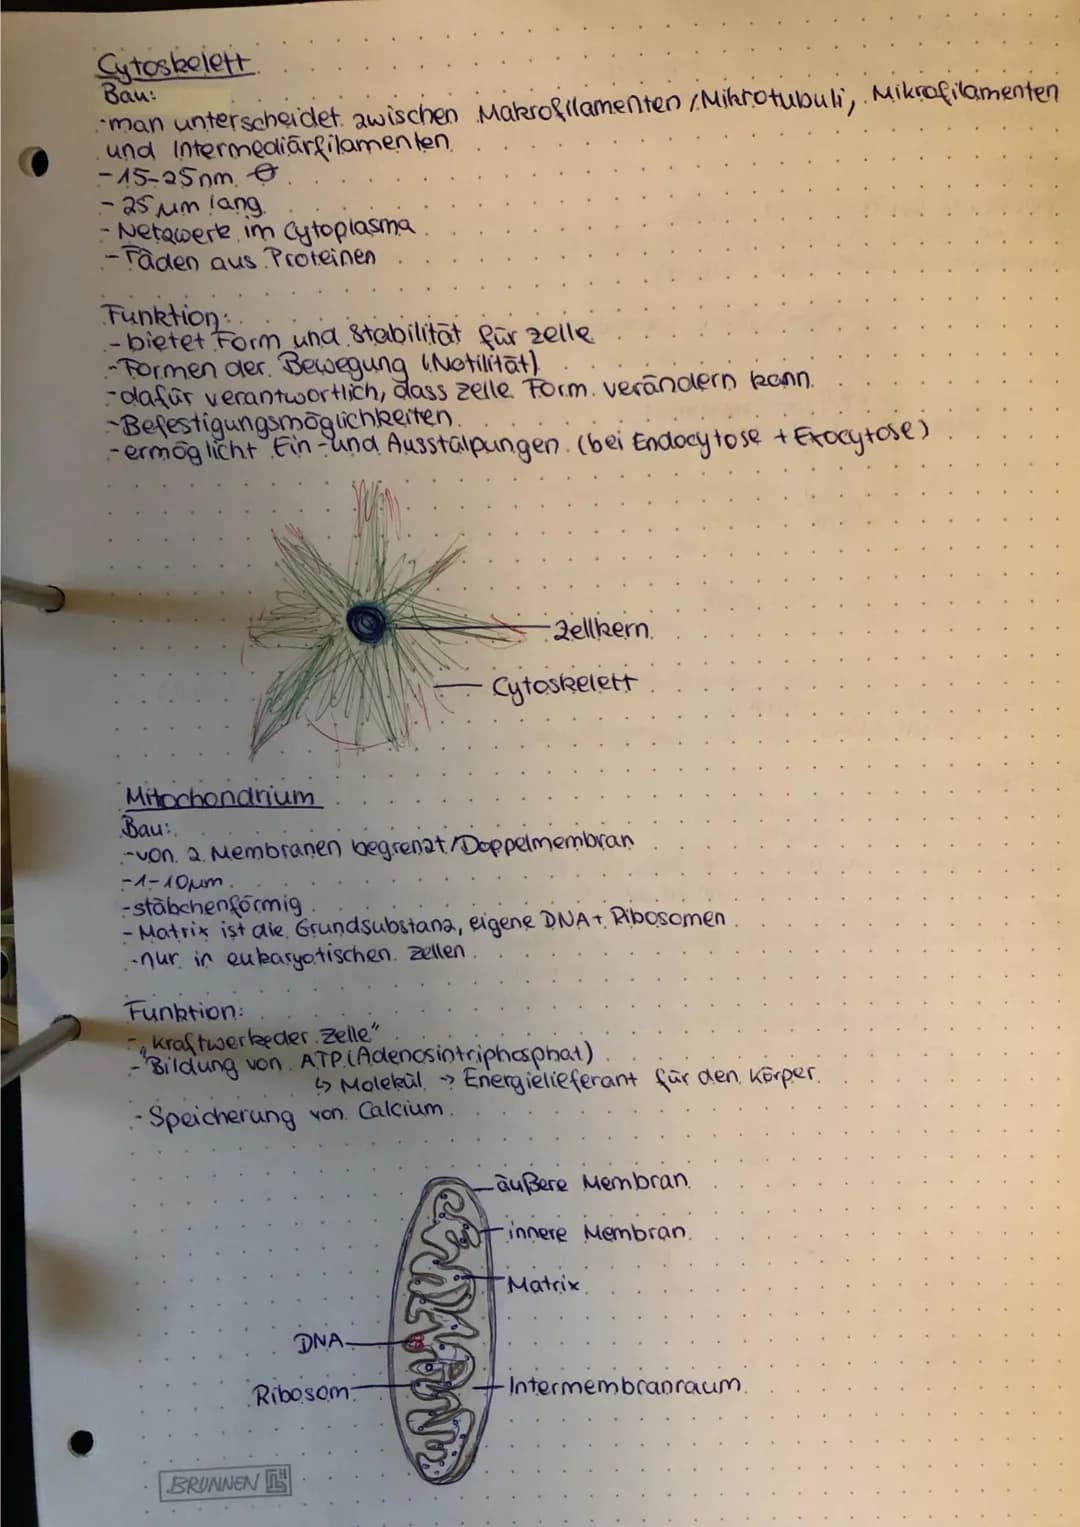 Cytoskelett
Bau:
-man unterscheidet zwischen Makrofilamenten/Mikrotubuli, Mikrofilamenten
und Intermediärfilamenten
-15-25nm ⌀
-25 µm lang
-Netzwerk im Cytoplasma
-Fäden aus Proteinen
Funktion:
-bietet Form und Stabilität für Zelle
-Formen der Bewegung (Motilität)
-dafür verantwortlich, dass Zelle Form verändern kann
-Befestigungsmöglichkeiten
-ermöglicht Ein-und Ausstülpungen (bei Endocytose + Exocytose)
Zellkern
Cytoskelett
Mitochondrium
Bau:
-von 2 Membranen begrenzt/Doppelmembran
-1-10µm
-stäbchenförmig
-Matrix ist die Grundsubstanz, eigene DNA+ Ribosomen
-nur in eukaryotischen Zellen
Funktion:
-„Kraftwerke der Zelle"
-Bildung von ATP (Adenosintriphosphat)
↳ Molekül → Energielieferant für den Körper
-Speicherung von Calcium
äußere Membran
innere Membran
Matrix
DNA
Ribosom
Intermembranraum
BRUNNEN